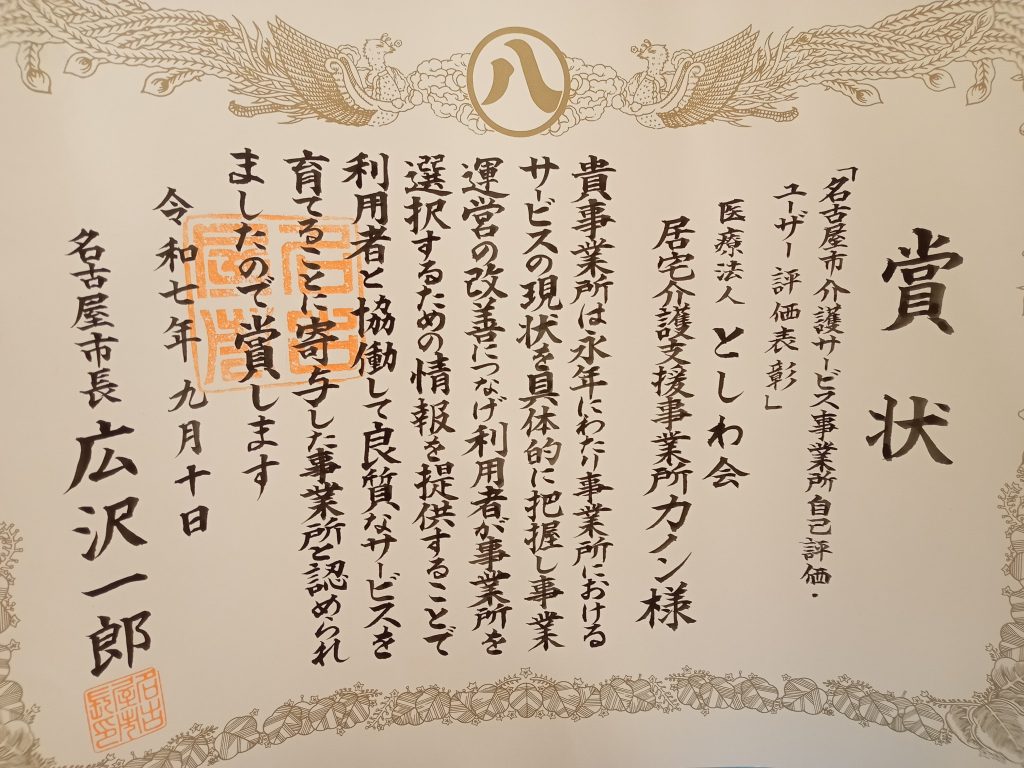 八
賞状
「名古屋市介護サービス事業所自己評価・
ユーザー評価表彰」
医療法人 としわ会
居宅介護支援事業所カノン様
貴事業所は永年にわたり事業所における
サービスの現状を具体的に把握し事業
運営の改善につなげ利用者が事業所を
選択するための情報を提供することで
利用者と協働して良質なサービスを
育てることに寄与した事業所と認められ
ましたので賞します
令和七年九月十日
名古屋市長 広沢一郎
名古屋市長印